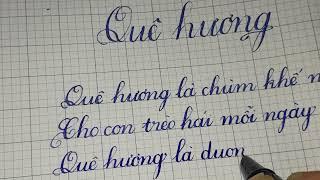 Quê hương
Quê hương là chùm khế n
Cho con trèo hái mỗi ngày
Quê hương là duon